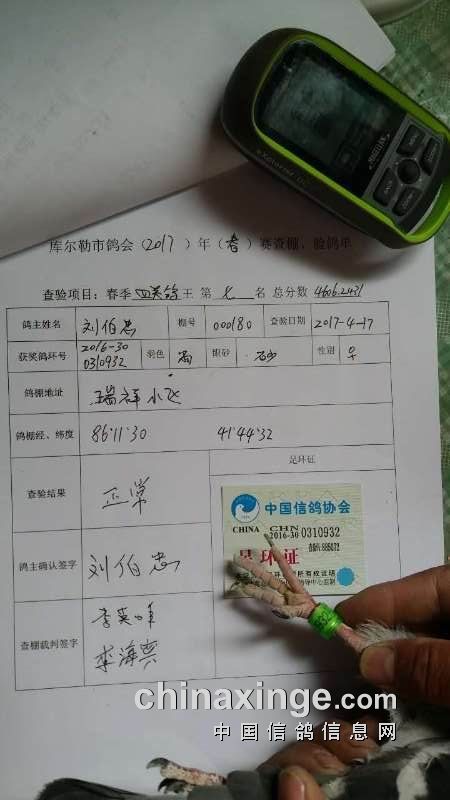 MAGELLAN
eXplorist
库尔勒市鸽会（2017）年（春）赛查棚、验鸽单
查验项目：春季 四关鸽王 第 七 名 总分数 4606.2431
鸽主姓名 刘伯忠 棚号 000180 查验日期 2017-4-17
获奖鸽环号 2016-30 0310932 羽色 雨 眼砂 砂 性别 ♀
鸽棚地址 瑞祥小区
鸽棚经、纬度 86°11'30 41°44'32
足环证
查验结果 正常
中国信鸽协会
CHINA CHN
2016-30 0310932
足环证
鸽主确认签字 刘伯忠
查棚裁判签字
chinaxinge.com
中国信鸽信息网